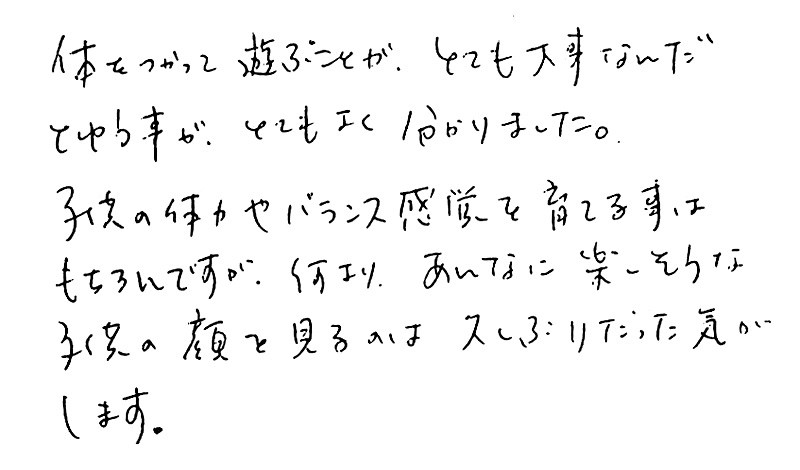 体をつかって遊ぶことが、とても大事なんだ
とゆう事が、とてもよく分かりました。
子供の体力やバランス感覚を育てる事は
もちろんですが、何より、あんなに楽しそうな
子供の顔を見るのは久しぶりだった気が
します。